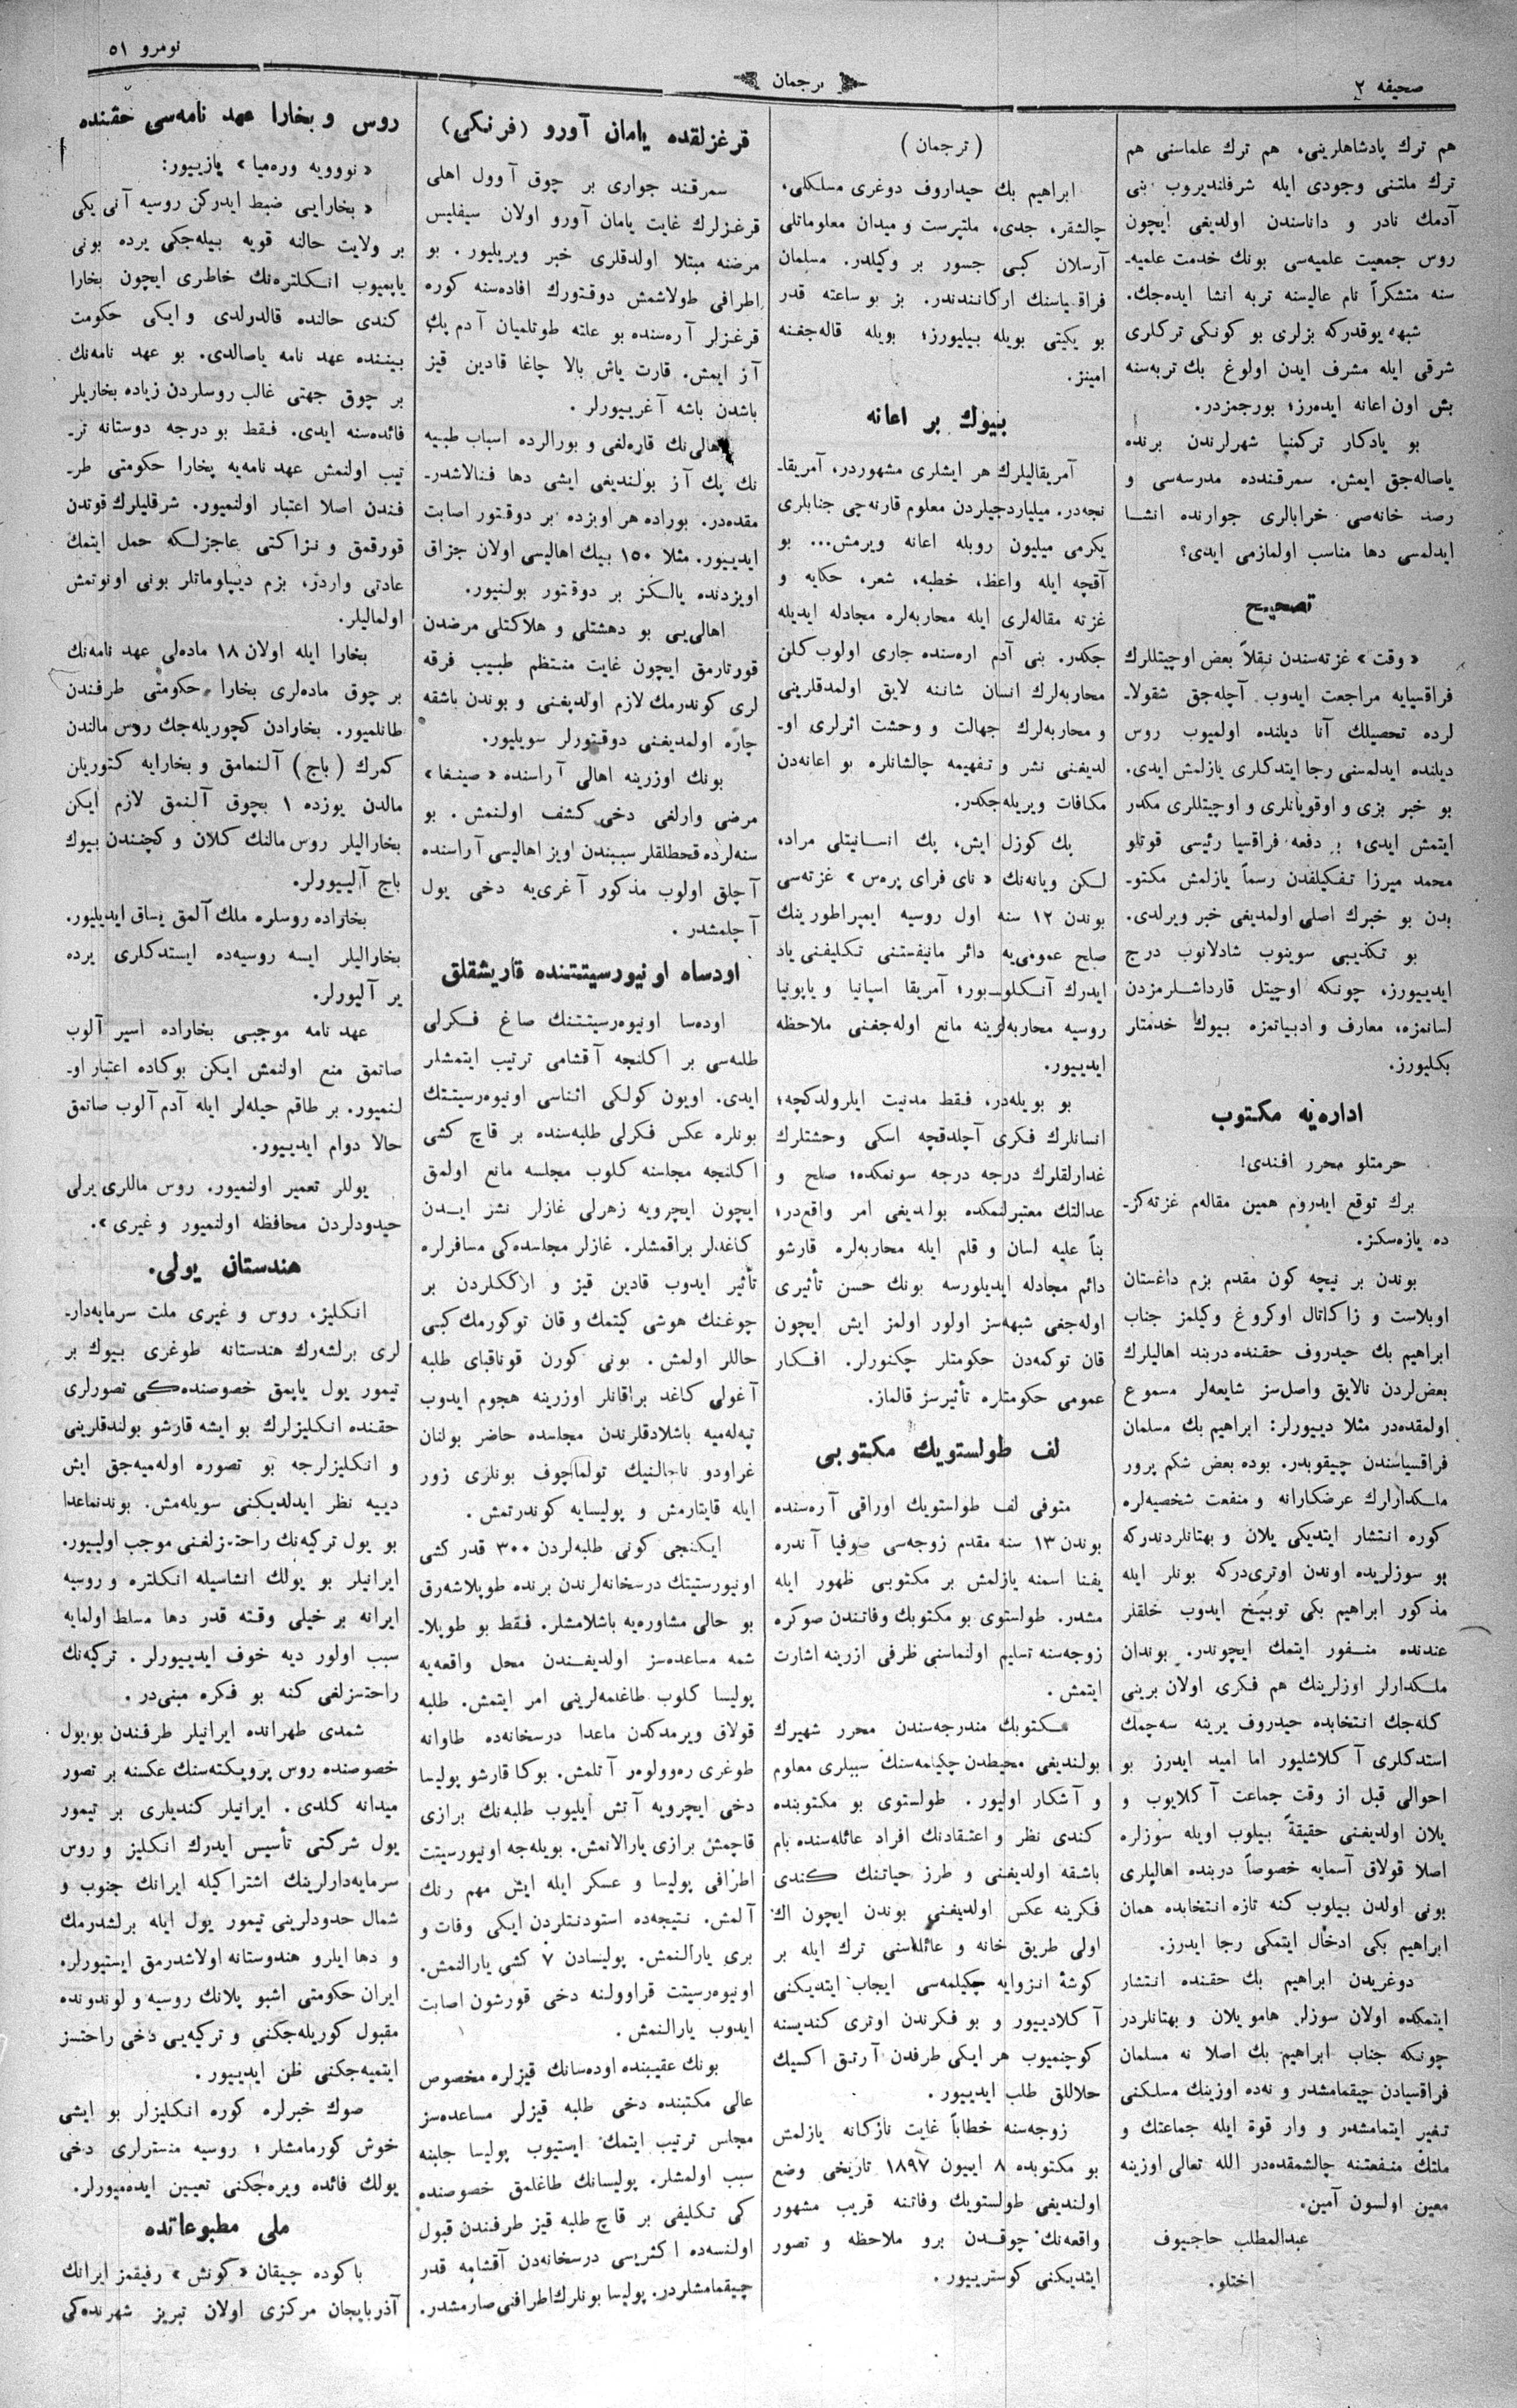 صحیفه ٢
ترجمان
نومرو ٥١
هم ترك پادشاهلرینی، هم ترك علماسنی هم
ترك ملتنی وجودی ایله شرفلندیروب بنی
آدمك نادر و داناسندن اولدیغی ایچون
روس جمعیت علمیه‌سی بونك خدمت علمیه‌ـ
سنه متشکراً نام عالیسنه تربه انشا ایده‌جك.
شبهه یوقدرکه بزلری بو کونکی ترکلری
شرقی ایله مشرف ایدن اولوغ بك تربه‌سنه
بش اون اعانه ایده‌رز؛ بورجمزدر.
بو یادکار ترکمنیا شهرلرندن برنده
یاصاله‌جق ایمش. سمرقندده مدرسه‌سی و
رصد خانه‌صی خرابالری جوارنده انشا
ایدلمسی دها مناسب اولمازمی ایدی؟
تصحیح
«وقت» غزته‌سندن نقلاً بعض اوچیتللرك
فراقسیایه مراجعت ایدوب آچله‌جق شقولاـ
لرده تحصیلك آنا دیلنده اولمیوب روس
دیلنده ایدلمسنی رجا ایتدکلری یازلمش ایدی.
بو خبر بزی و اوقویانلری و اوچیتللری مکدر
ایتمش ایدی؛ بر دفعه فراقسیا رئیسی قوتلو
محمد میرزا تفکیلفدن رسماً یازلمش مکتوـ
بدن بو خبرك اصلی اولمدیغی خبر ویرلدی.
بو تکذیبی سوینوب شادلانوب درج
ایدییورز، چونکه اوچیتل قارداشلرمزدن
لسانمزه، معارف و ادبیاتمزه بیوك خدمتار
بکلیورز.
اداره‌یه مکتوب
حرمتلو محرر افندی!
برك توقع ایدروم همین مقاله‌م غزته‌کزـ
ده یازه‌سکز.
بوندن بر نیچه کون مقدم بزم داغستان
اوبلاست و زاکاتال اوکروغ وکیلمز جناب
ابراهیم بك حیدروف حقنده دربند اهالیلرك
بعض‌لردن نالایق واصل‌سز شایعه‌لر مسموع
اولمقده‌در مثلا دییورلر: ابراهیم بك مسلمان
فراقسیاسندن چیقوبدر. بوده بعض شکم پرور
ملکدارلرك عرضکارانه و منفعت شخصیه‌لره
کوره انتشار ایتدیکی یلان و بهتانلردندرکه
بو سوزلریده اوندن اوتری‌درکه بونلر ایله
مذکور ابراهیم بکی توبیخ ایدوب خلقلر
عندنده منفور ایتمك ایچوندر. بوندان
ملکدارلر اوزلرینك هم فکری اولان برینی
کله‌جك انتخابده حیدروف یرینه سه‌چمك
استدکلری آکلاشلیور اما امید ایدرز بو
احوالی قبل از وقت جماعت آکلایوب و
یلان اولدیغنی حقیقةً بیلوب اویله سوزلره
اصلا قولاق آسمایه خصوصاً دربنده اهالیلری
بونی اولدن بیلوب کنه تازه انتخابده همان
ابراهیم بکی ادخال ایتمکی رجا ایدرز.
دوغریدن ابراهیم بك حقنده انتشار
ایتمکده اولان سوزلر هامو یلان و بهتانلردر
چونکه جناب ابراهیم بك اصلا نه مسلمان
فراقسیادن چیقمامشدر و نه‌ده اوزینك مسلکنی
تغیر ایتمامشدر و وار قوة ایله جماعتك و
ملتك منفعتنه چالشمقده‌در الله تعالی اوزینه
معین اولسون آمین.
عبدالمطلب حاجیوف
اختلو.
(ترجمان)
ابراهیم بك حیداروف دوغری مسلکلی،
چالشقر، جدی، ملتپرست و میدان معلوماتلی
آرسلان کبی جسور بر وکیلدر. مسلمان
فراقسیاسنك ارکانندندر. بز بو ساعته قدر
بو یکیتی بویله بیلیورز؛ بویله قاله‌جغنه
امینز.
بیوك بر اعانه
آمریقالیلرك هر ایشلری مشهوردر، آمریقاـ
نجه‌در. میلیاردجیلردن معلوم قارنه‌جی جنابلری
یکرمی میلیون روبله اعانه ویرمش... بو
آقچه ایله واعظ، خطبه، شعر، حکایه و
غزته مقاله‌لری ایله محاربه‌لره مجادله ایدیله
جکدر. بنی آدم اره‌سنده جاری اولوب کلن
محاربه‌لرك انسان شاننه لایق اولمدقلرینی
و محاربه‌لرك جهالت و وحشت اثرلری اوـ
لدیغنی نشر و تفهیمه چالشانلره بو اعانه‌دن
مکافات ویریله‌جکدر.
بك کوزل ایش، پك انسانیتلی مراد،
لکن ویانه‌نك «نای فرای پره‌س» غزته‌سی
بوندن ١٢ سنه اول روسیه ایمپراطورینك
صلح عمومی‌یه دائر مانیفستنی تکلیفنی یاد
ایدرك آنکلو-بور؛ آمریقا اسپانیا و یاپونیا
روسیه محاربه‌لرینه مانع اوله‌جغنی ملاحظه
ایدییور.
بو بویله‌در، فقط مدنیت ایلرولدکچه؛
انسانلرك فکری آچلدقچه اسکی وحشتلرك
غدارلقلرك درجه درجه سونمکده؛ صلح و
عدالتك معتبرلنمکده بولدیغی امر واقع‌در؛
بناً علیه لسان و قلم ایله محاربه‌لره قارشو
دائم مجادله ایدیلورسه بونك حسن تأثیری
اوله‌جغی شبهه‌سز اولور اولمز ایش ایچون
قان توکمه‌دن حکومتلر چکنورلر. افکار
عمومی حکومتلره تأثیرسز قالماز.
لف طولستویك مکتوبی
متوفی لف طولستویك اوراقی آره‌سنده
بوندن ١٣ سنه مقدم زوجه‌سی صوفیا آندره
یفنا اسمنه یازلمش بر مکتوبی ظهور ایله
مشدر. طولستوی بو مکتوبك وفاتندن صوکره
زوجه‌سنه تسلیم اولنماسنی ظرفی ازرینه اشارت
ایتمش.
مکتوبك مندرجه‌سندن محرر شهیرك
بولندیغی محیطدن چکیلمه‌سنك سببلری معلوم
و آشکار اولیور. طولستوی بو مکتوبنده
کندی نظر و اعتقادنك افراد عائله‌سنده بام
باشقه اولدیغنی و طرز حیاتنك کندی
فکرینه عکس اولدیغنی بوندن ایچون اك
اولی طریق خانه و عائله‌سنی ترك ایله بر
کوشۀ انزوایه چکیلمه‌سی ایجاب ایتدیکنی
آکلادییور و بو فکرندن اوتری کندیسنه
کوجنمیوب هر ایکی طرفدن آرتق اکسیك
حلاللق طلب ایدییور.
زوجه‌سنه خطاباً غایت نازکانه یازلمش
بو مکتوبده ٨ ایيون ١٨٩٧ تاریخی وضع
اولندیغی طولستویك وفاتنه قریب مشهور
واقعه‌نك چوقدن برو ملاحظه و تصور
ایتدیکنی کوسترییور.
قرغزلقده یامان آورو (فرنکی)
سمرقند جواری بر چوق آوول اهلی
قرغزلرك غایت یامان آورو اولان سیفلیس
مرضنه مبتلا اولدقلری خبر ویریلیور. بو
اطرافی طولاشمش دوقتورك افاده‌سنه کوره
قرغزلر آره‌سنده بو علته طوتلمیان آدم پك
آز ایمش. قارت یاش بالا چاغا قادین قیز
باشدن باشه آغرییورلر.
اهالی‌نك قاره‌لغی و بورالرده اسباب طبیه
نك پك آز بولندیغی ایشی دها فنالاشدرـ
مقده‌در. بوراده هر اویزده بر دوقتور اصابت
ایدییور. مثلا ١٥٠ بیك اهالیسی اولان جزاق
اویزدنده یالکز بر دوقتور بولنیور.
اهالی‌یی بو دهشتلی و هلاکتلی مرضدن
قورتارمق ایچون غایت منتظم طبیب فرقه
لری کوندرمك لازم اولدیغنی و بوندن باشقه
چاره اولمدیغنی دوقتورلر سویلیور.
بونك اوزرینه اهالی آراسنده «صینغا»
مرضی وارلغی دخی کشف اولنمش. بو
سنه‌لرده قحطلقلر سببندن اویز اهالیسی آراسنده
آچلق اولوب مذکور آغری‌یه دخی یول
آچلمشدر.
اودساه اونیورسیتتنده قاریشقلق
اوده‌سا اونیوه‌رسیتتنك صاغ فکرلی
طلبه‌سی بر اکلنجه آقشامی ترتیب ایتمشلر
ایدی. اویون کولکی اثناسی اونیوه‌رسیتتك
بونلره عکس فکرلی طلبه‌سنده بر قاچ کشی
اکلنجه مجلسنه کلوب مجلسه مانع اولمق
ایچون ایچرویه زهرلی غازلر نشر ایدن
کاغدلر براقمشلر. غازلر مجلسده‌کی مسافرلره
تأثیر ایدوب قادین قیز و ارککلردن بر
چوغنك هوشی کیتمك و قان توکورمك کبی
حاللر اولمش. بونی کورن قوناقبای طلبه
آغولی کاغد براقانلر اوزرینه هجوم ایدوب
تپه‌له‌میه باشلادقلرندن مجلسده حاضر بولنان
غراودو ناچالنیك تولماچوف بونلری زور
ایله قایتارمش و پولیسایه کوندرتمش.
ایکنجی کونی طلبه‌لردن ٣٠٠ قدر کشی
اونیورستیتك درسخانه‌لرندن برنده طوپلاشه‌رق
بو حالی مشاوره‌یه باشلامشلر. فقط بو طوپلاـ
شمه مساعده‌سز اولدیغندن محل واقعه‌یه
پولیسا کلوب طاغلمه‌لرینی امر ایتمش. طلبه
قولاق ویرمدکدن ماعدا درسخانه‌ده طاوانه
طوغری ره‌وولوه‌ر آتلمش. بوکا قارشو پولیسا
دخی ایچرویه آتش ایلیوب طلبه‌نك برازی
قاچمش برازی یارالانمش. بویله‌جه اونیورسیتت
اطرافی پولیسا و عسکر ایله ایش مهم رنك
آلمش. نتیجه‌ده استودنتلردن ایکی وفات و
بری یارالنمش. پولیسادن ٧ کشی یارالنمش.
اونیوه‌رسیتت قراوولنه دخی قورشون اصابت
ایدوب یارالنمش.
بونك عقیبنده اوده‌سانك قیزلره مخصوص
عالی مکتبنده دخی طلبه قیزلر مساعده‌سز
مجلس ترتیب ایتمك ایستیوب پولیسا جلبنه
سبب اولمشلر. پولیسانك طاغلمق خصوصنده
کی تکلیفی بر قاچ طلبه قیز طرفندن قبول
اولنسه‌ده اکثریسی درسخانه‌دن آقشامه قدر
چیقمامشلردر. پولیسا بونلرك اطرافنی صارمشدر.
روس و بخارا عهد نامه‌سی حقنده
«نوویه وره‌میا» یازییور:
«بخارایی ضبط ایدرکن روسیه آنی یکی
بر ولایت حالنه قویه بیله‌جکی یرده بونی
یاپمیوب انکلتره‌نك خاطری ایچون بخارا
کندی حالنده قالدرلدی و ایکی حکومت
بیننده عهد نامه یاصالدی. بو عهد نامه‌نك
بر چوق جهتی غالب روسلردن زیاده بخاریلر
فائده‌سنه ایدی. فقط بو درجه دوستانه ترـ
تیب اولنمش عهد نامه‌یه بخارا حکومتی طرـ
فندن اصلا اعتبار اولنمیور. شرقلیلرك قوتدن
قورقمق و نزاکتی عاجزلکه حمل ایتمك
عادتی واردر، بزم دیپلوماتلر بونی اونوتمش
اولمالیلر.
بخارا ایله اولان ١٨ ماده‌لی عهد نامه‌نك
بر چوق ماده‌لری بخارا حکومتی طرفندن
طانلمیور. بخارادن کچوریله‌جك روس مالندن
کمرك (باج) آلنمامق و بخارایه کتوریلن
مالدن یوزده ١ بچوق آلنمق لازم ایکن
بخارالیلر روس مالنك کلان و کچنندن بیوك
باج آلییورلر.
بخاراده روسلره ملك آلمق یساق ایدیلیور.
بخارالیلر ایسه روسیه‌ده ایستدکلری یرده
یر آلیورلر.
عهد نامه موجبی بخاراده اسیر آلوب
صاتمق منع اولنمش ایکن بوکاده اعتبار اوـ
لنمیور. بر طاقم حیله‌لر ایله آدم آلوب صاتمق
حالا دوام ایدییور.
یوللر تعمیر اولنمیور. روس ماللری یرلی
حیدودلردن محافظه اولنمیور و غیری».
هندستان یولی.
انکلیز، روس و غیری ملت سرمایه‌دارـ
لری برلشه‌رك هندستانه طوغری بیوك بر
تیمور یول یاپمق خصوصنده‌کی تصورلری
حقنده انکلیزلرك بو ایشه قارشو بولندقلرینی
و انکلیزلرجه بو تصوره اوله‌میه‌جق ایش
دییه نظر ایدلدیکنی سویله‌مش. بوندنماعدا
بو یول ترکیه‌نك راحتسزلغنی موجب اولییور.
ایرانیلر بو یولك انشاسیله انکلتره و روسیه
ایرانه بر خیلی وقته قدر دها مسلط اولمایه
سبب اولور دیه خوف ایدییورلر. ترکیه‌نك
راحتسزلغی کنه بو فکره مبنی‌در.
شمدی طهرانده ایرانیلر طرفندن بو یول
خصوصنده روس پرویکته‌سنك عکسنه بر تصور
میدانه کلدی. ایرانیلر کندیلری بر تیمور
یول شرکتی تأسیس ایدرك انکلیز و روس
سرمایه‌دارلرینك اشتراکیله ایرانك جنوب و
شمال حدودلرینی تیمور یول ایله برلشدرمك
و دها ایلرو هندوستانه اولاشدرمق ایستیورلر.
ایران حکومتی اشبو پلانك روسیه و لوندونده
مقبول کوریله‌جکنی و ترکیه‌یی دخی راحتسز
ایتمیه‌جکنی ظن ایدییور.
صوك خبرلره کوره انکلیزلر بو ایشی
خوش کورمامشلر؛ روسیه منسترلری دخی
یولك فائده ویره‌جکنی تعیین ایده‌میورلر.
ملی مطبوعاتده
باکوده چیقان «کونش» رفیقمز ایرانك
آذربایجان مرکزی اولان تبریز شهرنده‌کی